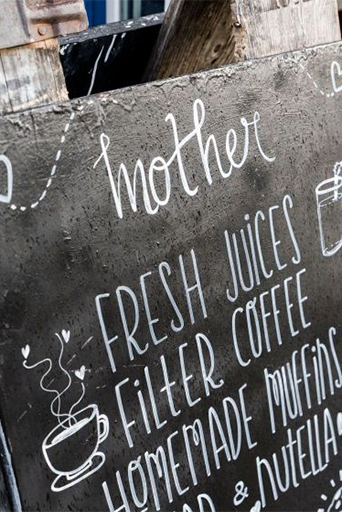 mother
FRESH JUICES
FILTER COFFEE
HOMEMADE MUFFINS
& NUTELLA